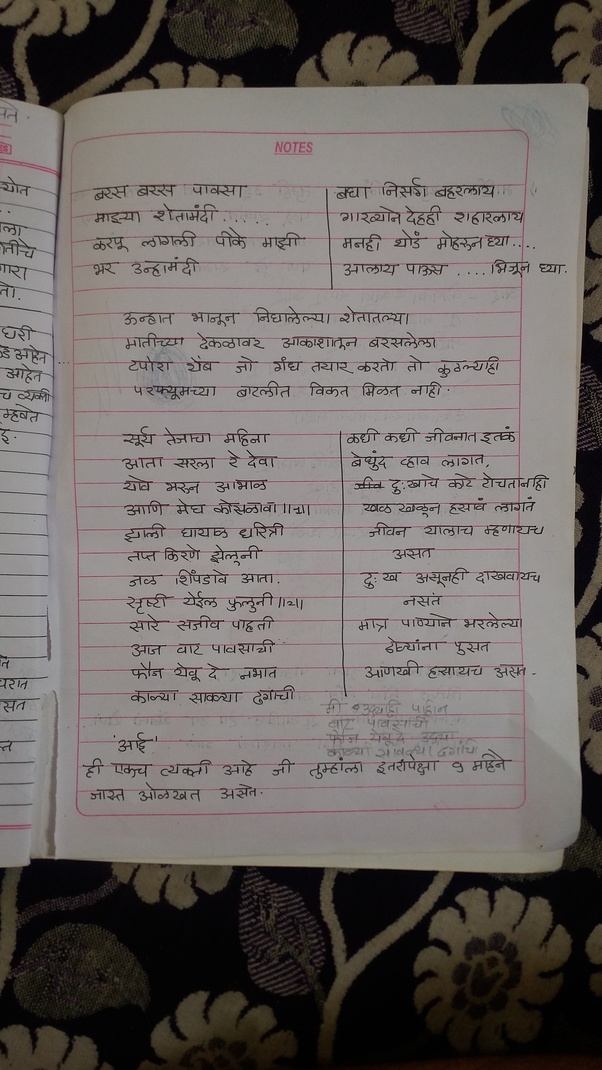 NOTES
बरस बरस पावसा
माझ्या शेतामंदी......
करपू लागली पीके माझी
भर उन्हामंदी
बघा निसर्ग बहरलाय
गारव्याने देहही शहारलाय
मनही थोडं मोहरुन घ्या....
आलाय पाऊस ....भिजून घ्या.
ऊन्हात भाजून निघालेल्या शेतातल्या
मातीच्या ढेकळावर आकाशातून बरसलेला
टपोरा थेंब जो गंध तयार करतो तो कुठल्याही
परफ्यूमच्या बाटलीत विकत मिळत नाही.
सूर्य तेजाचा महिना
आता सरला रे देवा
यावे भरुन आभाळ
आणि मेघ कोसळावा ॥१॥
झाली घायळ धरित्री
तप्त किरणे झेलूनी
जळ शिंपडावे आता.
सृष्टी येईल फुलुनी ॥२॥
सारे सजीव पाहती
आज वाट पावसाची
फौज येवू दे नभात
काळ्या सावळ्या ढगांची
कधी कधी जीवनात इतकं
बेधुंद व्हाव लागत,
दु:खाचे काटे टोचतानाही
खळ खळून हसावं लागतं
जीवन यालाच म्हणायच
असत
दु:ख असूनही दाखवायच
नसत
मात्र पाण्याने भरलेल्या
डोळ्यांना पुसत
आणखी हसायच असत.
वाट पावसाची
'आई'
ही एकच व्यक्ती आहे जी तुम्हांला इतरांपेक्षा ९ महिने
जास्त ओळखत असते.